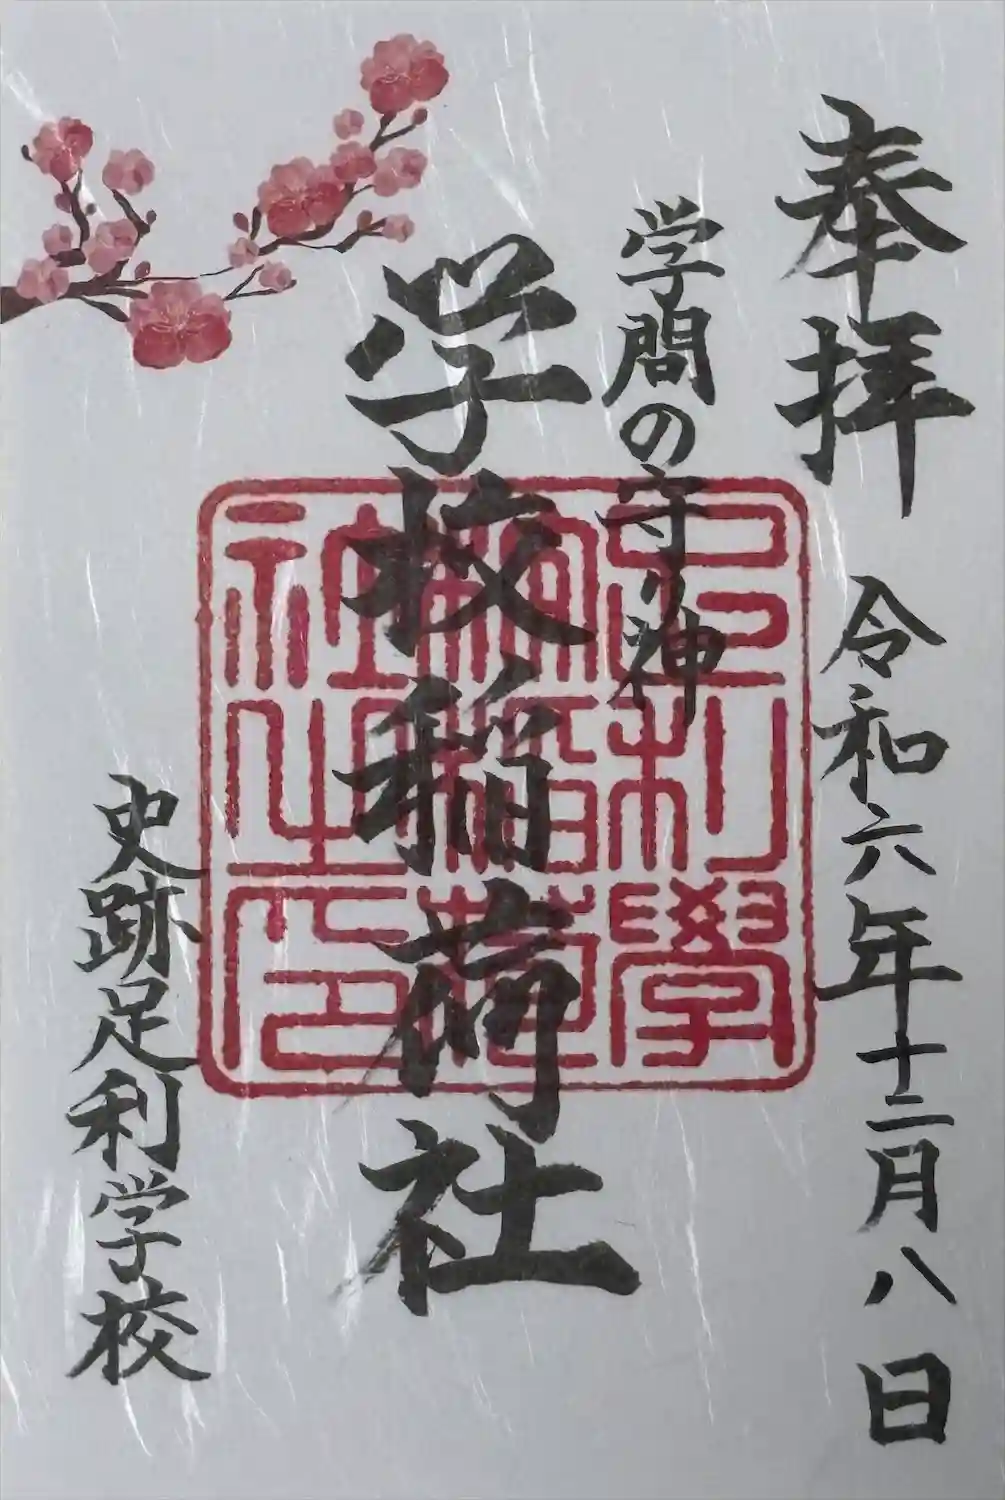 奉拝
令和六年十二月八日
学問の守り神
学校稲荷社
史跡足利学校
足利學
校稲荷
社之印